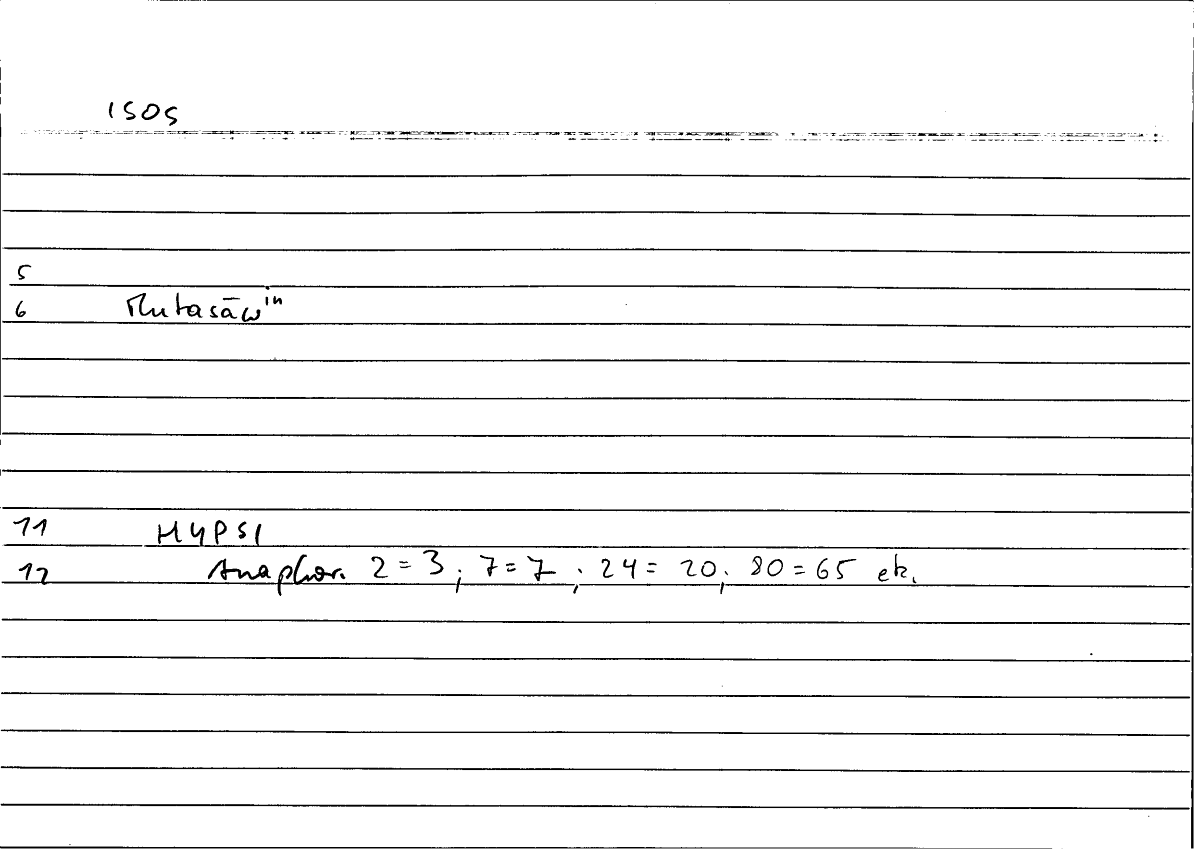 ISOS
5
6 Mutasāwin
11 HYPSI
12 Anaphor. 2 = 3; 7 = 7; 24 = 20; 80 = 65 etc.